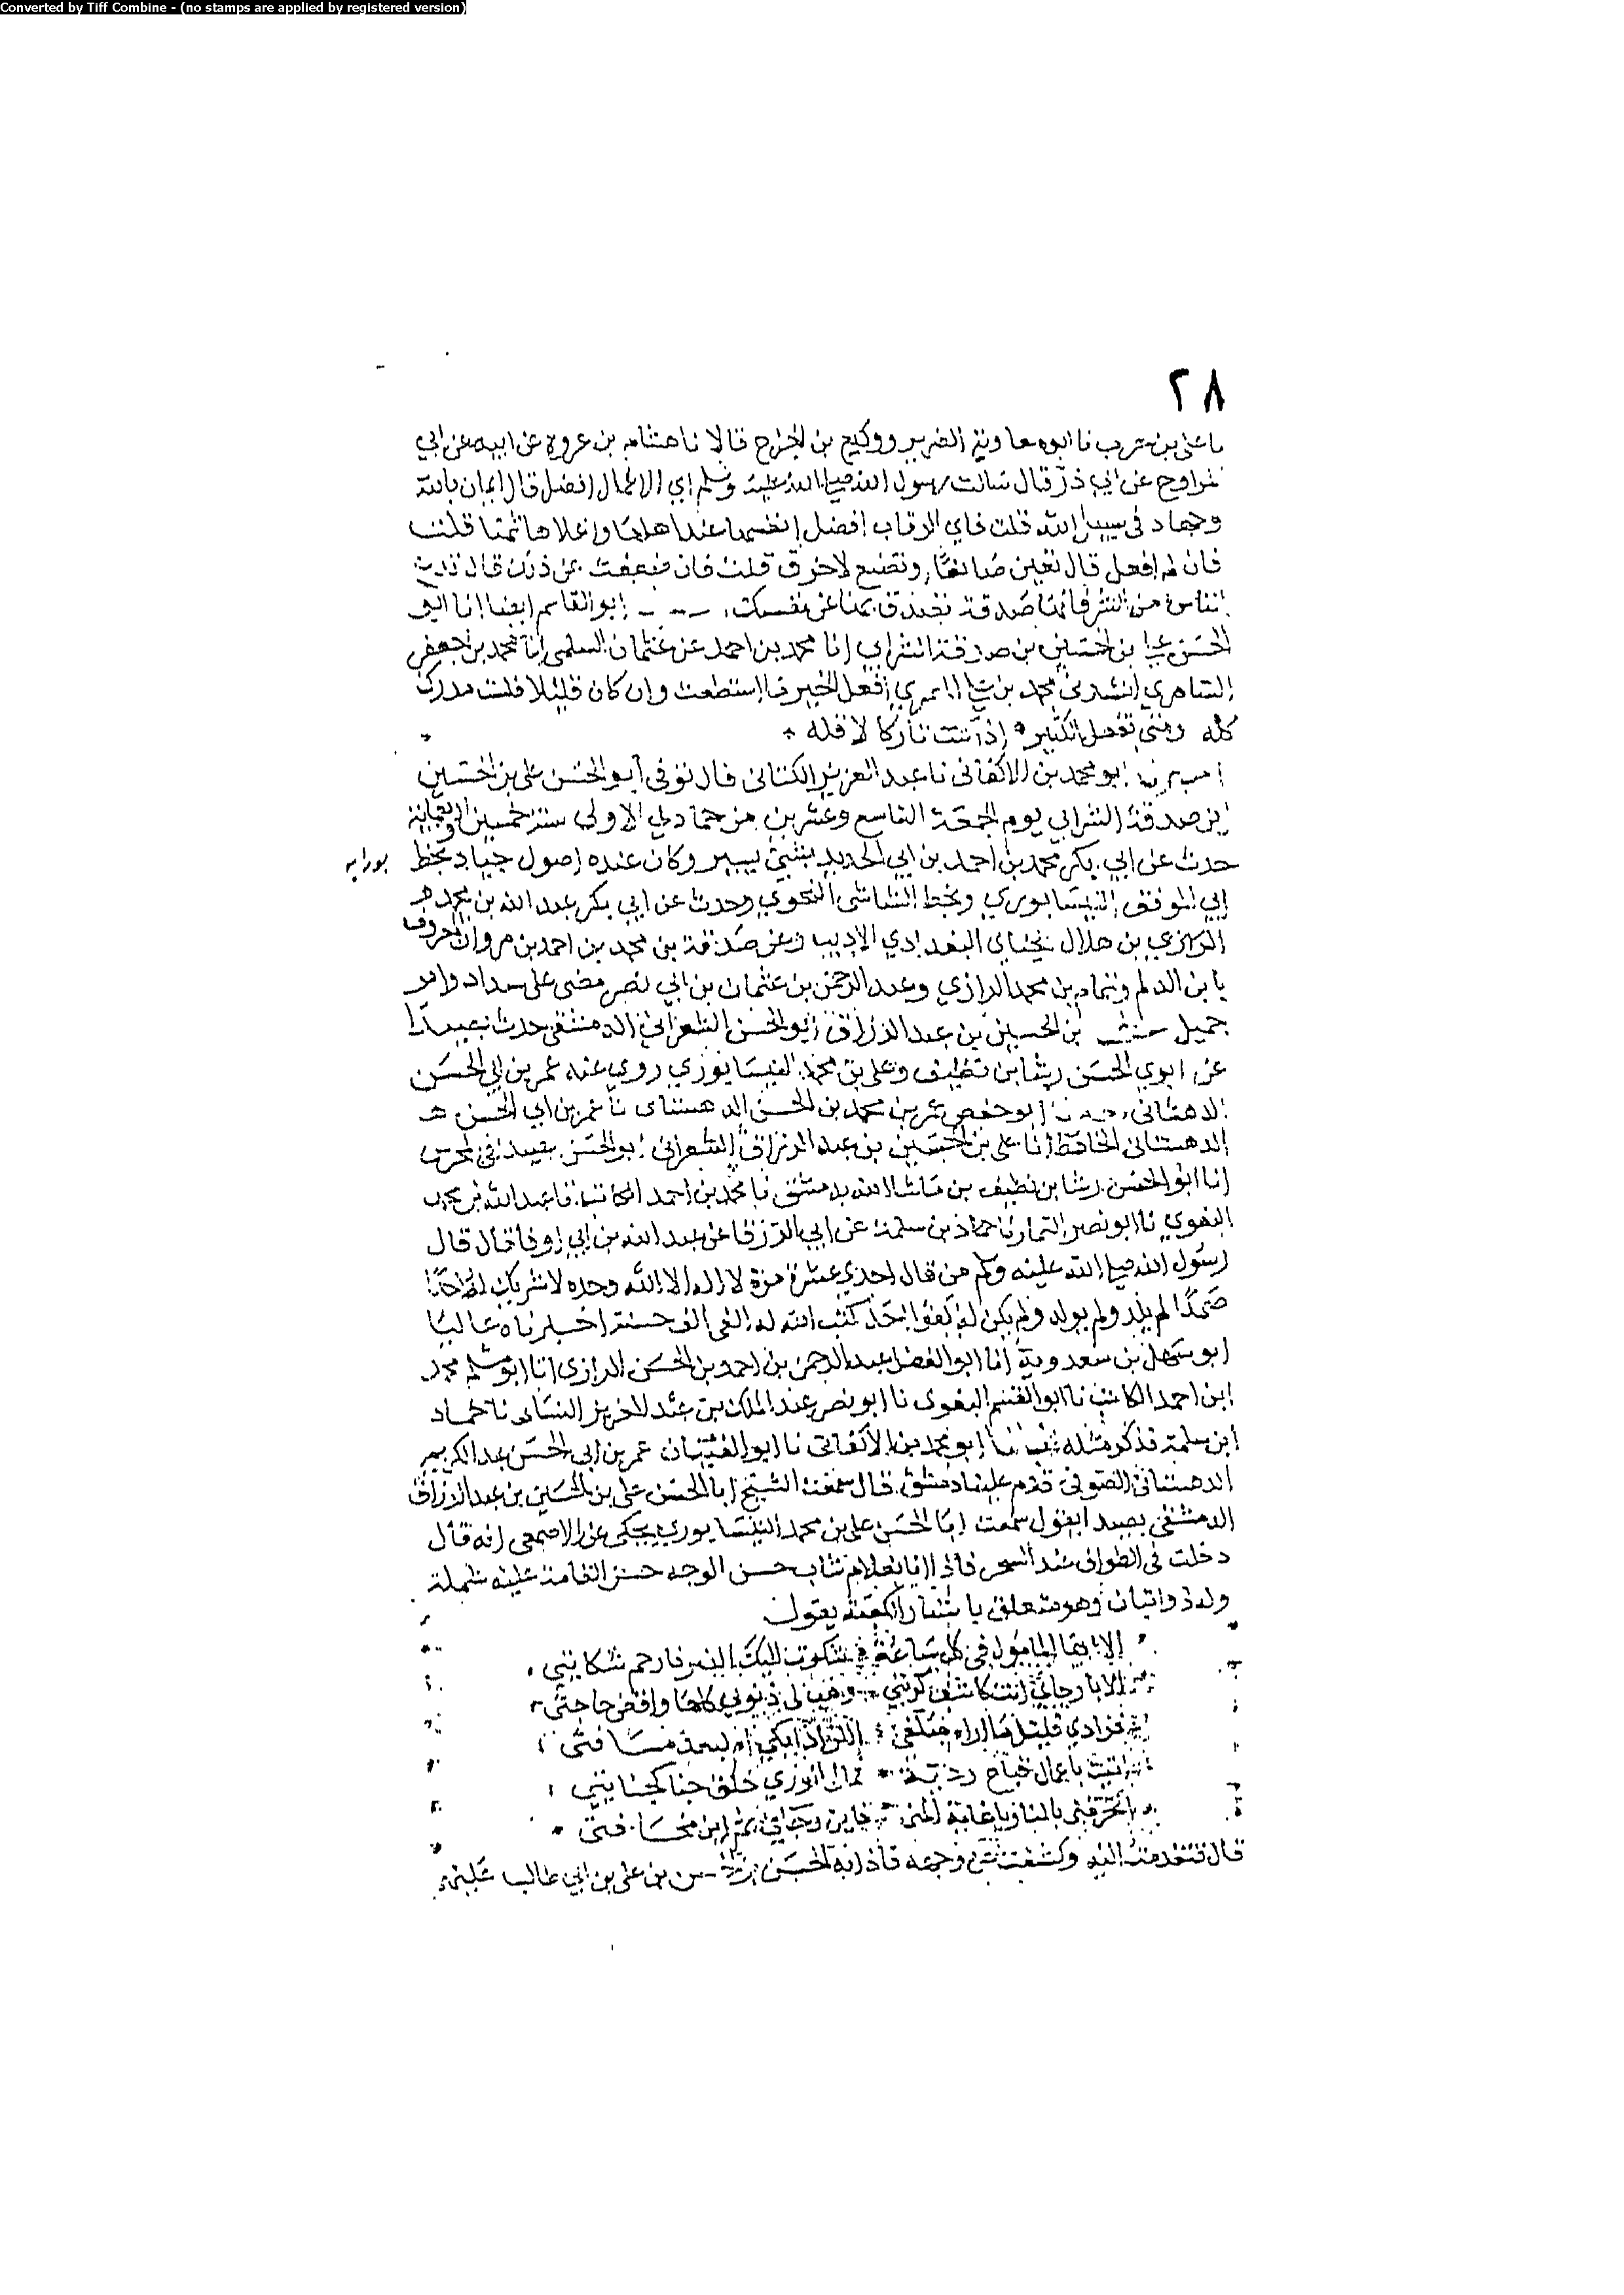 Converted by Tiff Combine - (no stamps are applied by registered version)
٢٨
نا على بن حرب نا ابو معاوية الضرير ووكيع بن الجراح قالا نا هشام بن عروة عن ابيه عن ابي
مراوح عن ابي ذر قال سالت رسول الله صلى الله عليه وسلم اي الاعمال افضل قال ايمان بالله
وجهاد في سبيل الله قلت فاي الرقاب افضل انفسها عند اهلها واغلاها ثمنا قلت
فان لم افعل قال تعين صانعا وتصنع لاخرق قلت فان ضعفت عن ذلك قال تدع
الناس من الشر فانها صدقة تصدق بها عن نفسك ابو القاسم ايضا انا ابي
الحسن على بن الحسين بن صدقة الشرابي انا محمد بن احمد عن عثمان السلمى انا محمد بن جعفر
السامري انشدنى محمد بن افعل الخير ما استطعت وان كان قليلا فلست مدركا
كله ومتى تفعل الكثير اذا كنت تاركا لاقله
ابو محمد بن الاكفانى نا عبد العزيز الكتانى قال توفى ابو الحسن على بن الحسين
ابن صدقة الشرابي يوم الجمعة التاسع وعشرين من جمادي الاولى سنة خمسين واربعماية
حدث عن ابي بكر محمد بن احمد بن ابي الحديد بشئ يسير وكان عنده اصول جياد بخط
ابي الموفق النيسابوري وبخط الشاشى النحوي وحدث عن ابي بكر عبد الله بن محمد
الرازي بن هلال البغدادي الاديب وعن صدقة بن محمد بن احمد بن مروان المعروف
بابن الدلم وتمام بن محمد الرازي وعبد الرحمن بن عثمان بن ابي نصر مضى على سداد وامر
جميل بن الحسين بن عبد الرزاق ابو الحسن الشعرانى الدمشقى حدث بصيدا
عن ابوي الحسن رشا بن نظيف وعلى بن محمد النيسابوري روي عنه عمر بن ابي الحسن
الدهستانى ابو حفص عمر بن محمد بن الحسن الدهستانى نا عمر بن ابي الحسن
الدهستانى الحافظ انا على بن الحسين بن عبد الرزاق الشعرانى ابو الحسن بصيدا في
انا ابو الحسن رشا بن نظيف بن ماشا الله بدمشق نا محمد بن احمد الكاتب نا عبد الله بن محمد
البغوي نا ابو نصر التمار نا حماد بن سلمة عن ابي الورقا عن عبد الله بن ابي اوفا قال قال
رسول الله صلى الله عليه وسلم من قال احدي عشرة مرة لا اله الا الله وحده لا شريك له احدا
صمدا لم يلد ولم يولد ولم يكن له كفوا احد كتب الله له الفى الف حسنة اخبرناه عاليا
ابو سهل بن سعدوية انا ابو الفضل عبد الرحمن بن احمد بن الحسن الرازي انا ابو مسلم محمد
ابن احمد الكاتب نا ابو القسم البغوى نا ابو نصر عبد الملك بن عبد العزيز النسائى نا حماد
ابن سلمة فذكر مثله ابو محمد بن الاكفانى نا ابو الفتيان عمر بن ابى الحسن عبد الكريم
الدهستانى الصوفى قدم علينا دمشق قال سمعت الشيخ ابا الحسن على بن الحسين بن عبد الرزاق
الدمشقى بصيدا يقول سمعت ابا الحسن على بن محمد النيسابوري يحكى عن الاصمعى انه قال
دخلت في الطواف عند السحر فاذا انا بغلام شاب حسن الوجه حسن القامة عليه شملة
وله ذوابتان وهو متعلق باستار الكعبة يقول
الا ايها المامول في كل ساعة شكوت اليك الضر فارحم شكايتي
الا يا رجائي انت كاشف كربتي وهب لى ذنوبي كلها واقض حاجتى
فزادي قليل ما اراه مبلغى اللزاد ابكي ام لبعد مسافتى
اتيت باعمال قباح ردية فما فى الوري خلق جنا كجنايتي
اتحرقنى بالنار يا غاية المنى فاين رجائي ثم اين مخافتى
قال فتقدمت اليه وكشفت عن وجهه فاذا به الحسن بن على بن ابي طالب عليهم